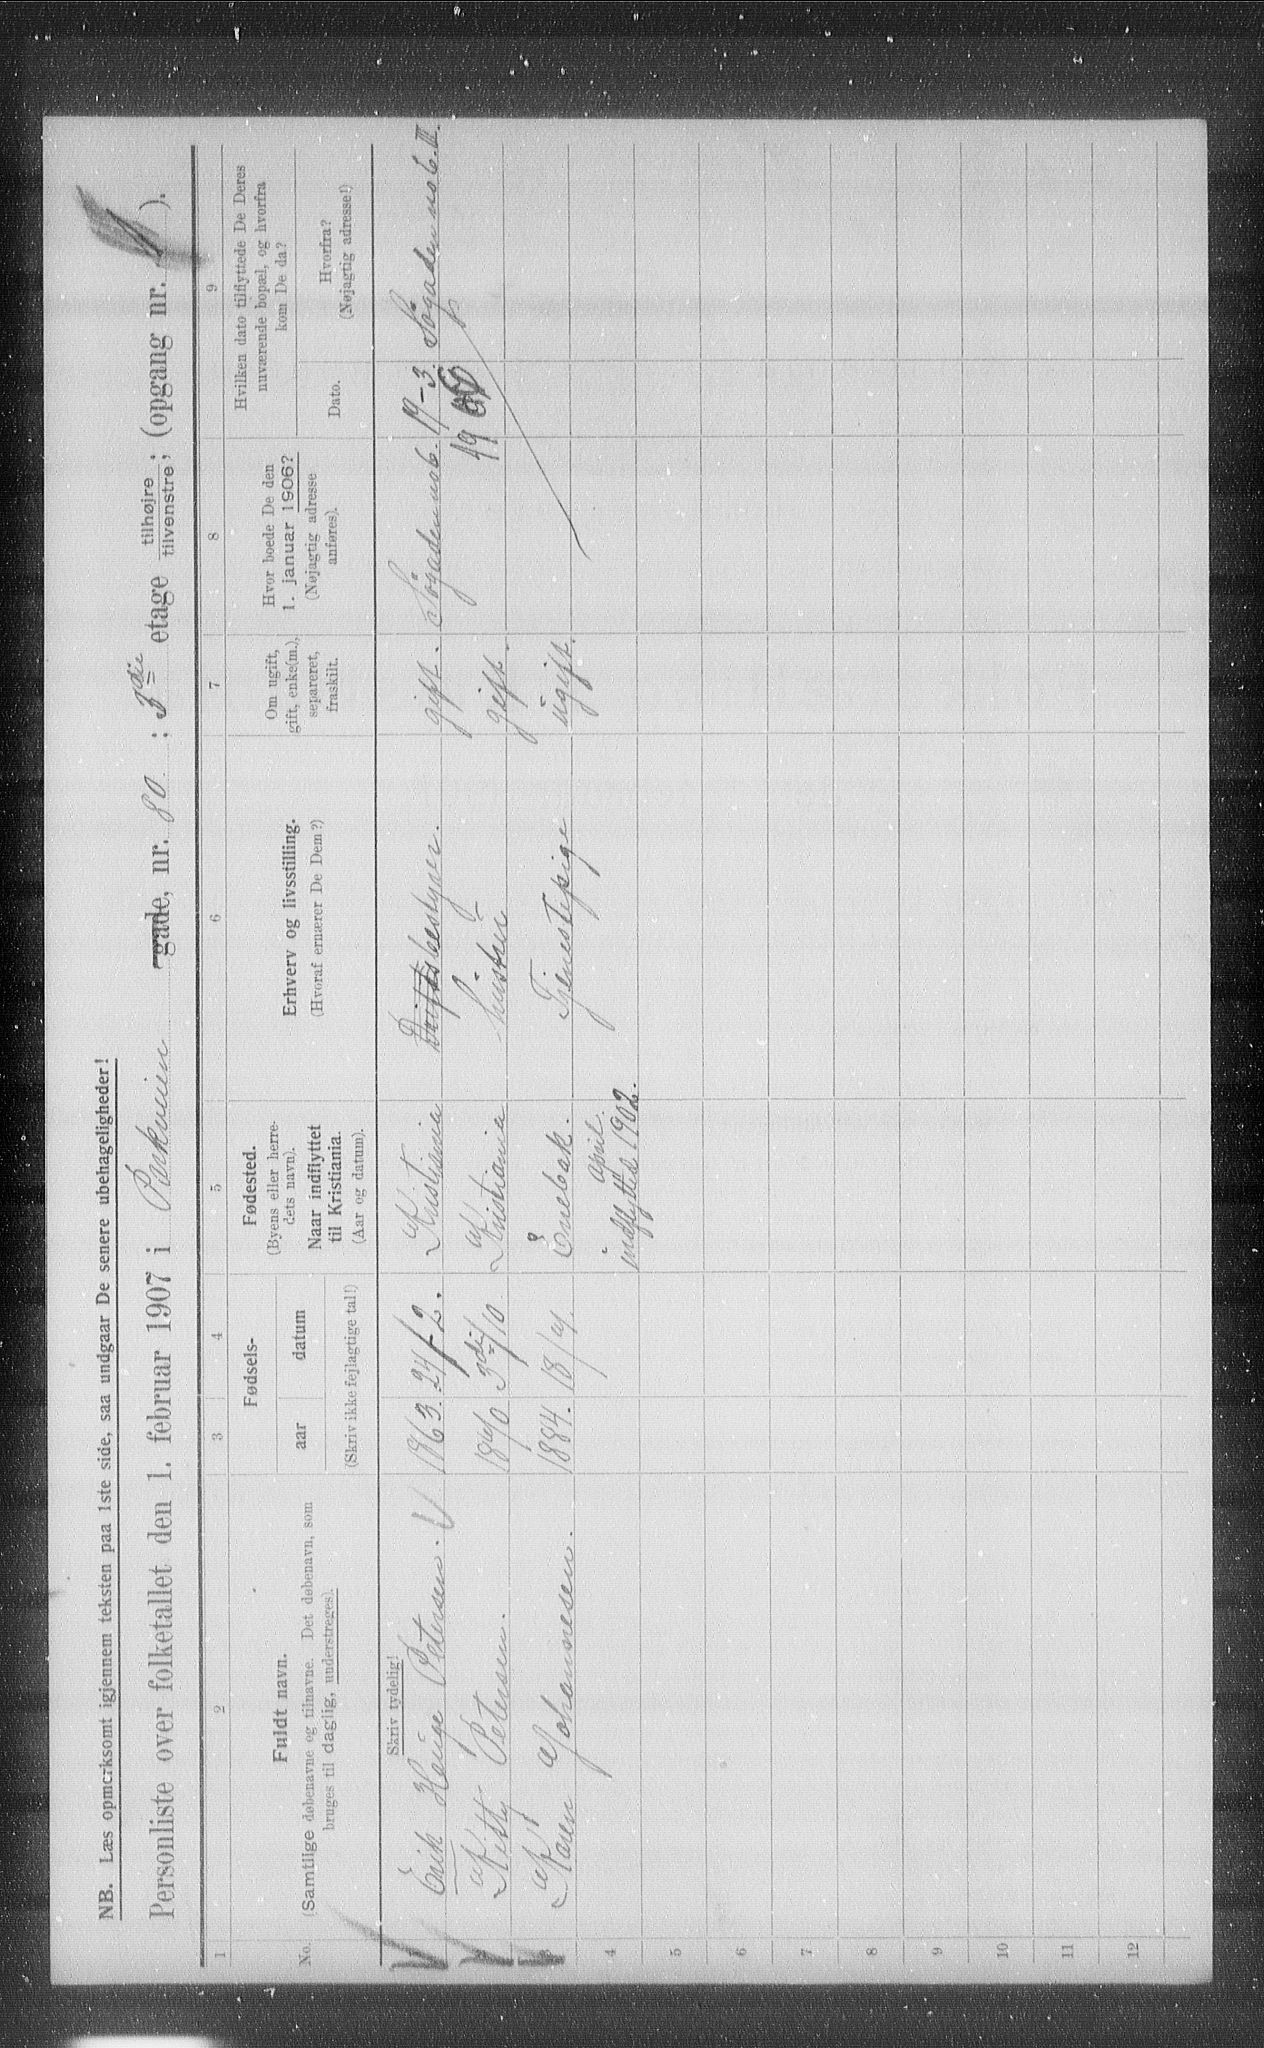 NB. Læs opmerksomt igjennem teksten paa 1ste side, saa undgaar De senere ubehageligheder!
Personliste over folketallet den 1. februar 1907 i Parkveien gade, nr. 80 ; 3die etage tilhøjre; tilvenstre; (opgang nr. 1 ).
1 2 3 4 5 6 7 8 9
No.
Fuldt navn.
(Samtlige døbenavne og tilnavne. Det døbenavn, som
bruges til daglig, understreges).
Fødsels-
aar
datum
(Skriv ikke fejlagtige tal!)
Fødested.
(Byens eller herre-
dets navn).
Naar indflyttet
til Kristiania.
(Aar og datum).
Erhverv og livsstilling.
(Hvoraf ernærer De Dem?)
Om ugift,
gift, enke(m.),
separeret,
fraskilt.
Hvor boede De den
1. januar 1906?
(Nøjagtig adresse
anføres).
Hvilken dato tilflyttede De Deres
nuværende bopæl, og hvorfra
kom De da?
Dato.
Hvorfra?
(Nøjagtig adresse!)
Skriv tydelig!
Erik Hauge Petersen. 1863. 24/-2. Kristiania Driftsbestyrer. gift. Søgaden no 6. 19-3. Søgaden no 6. III.
Kitty Petersen. 3die/10. Kristiania hustru gift. 19
3 Karen Johannesen. 1884. 18/4. Enebak. Tjenestepige ugift.
4 indflyttet april 1902.
5
6
7
8
9
10
11
12